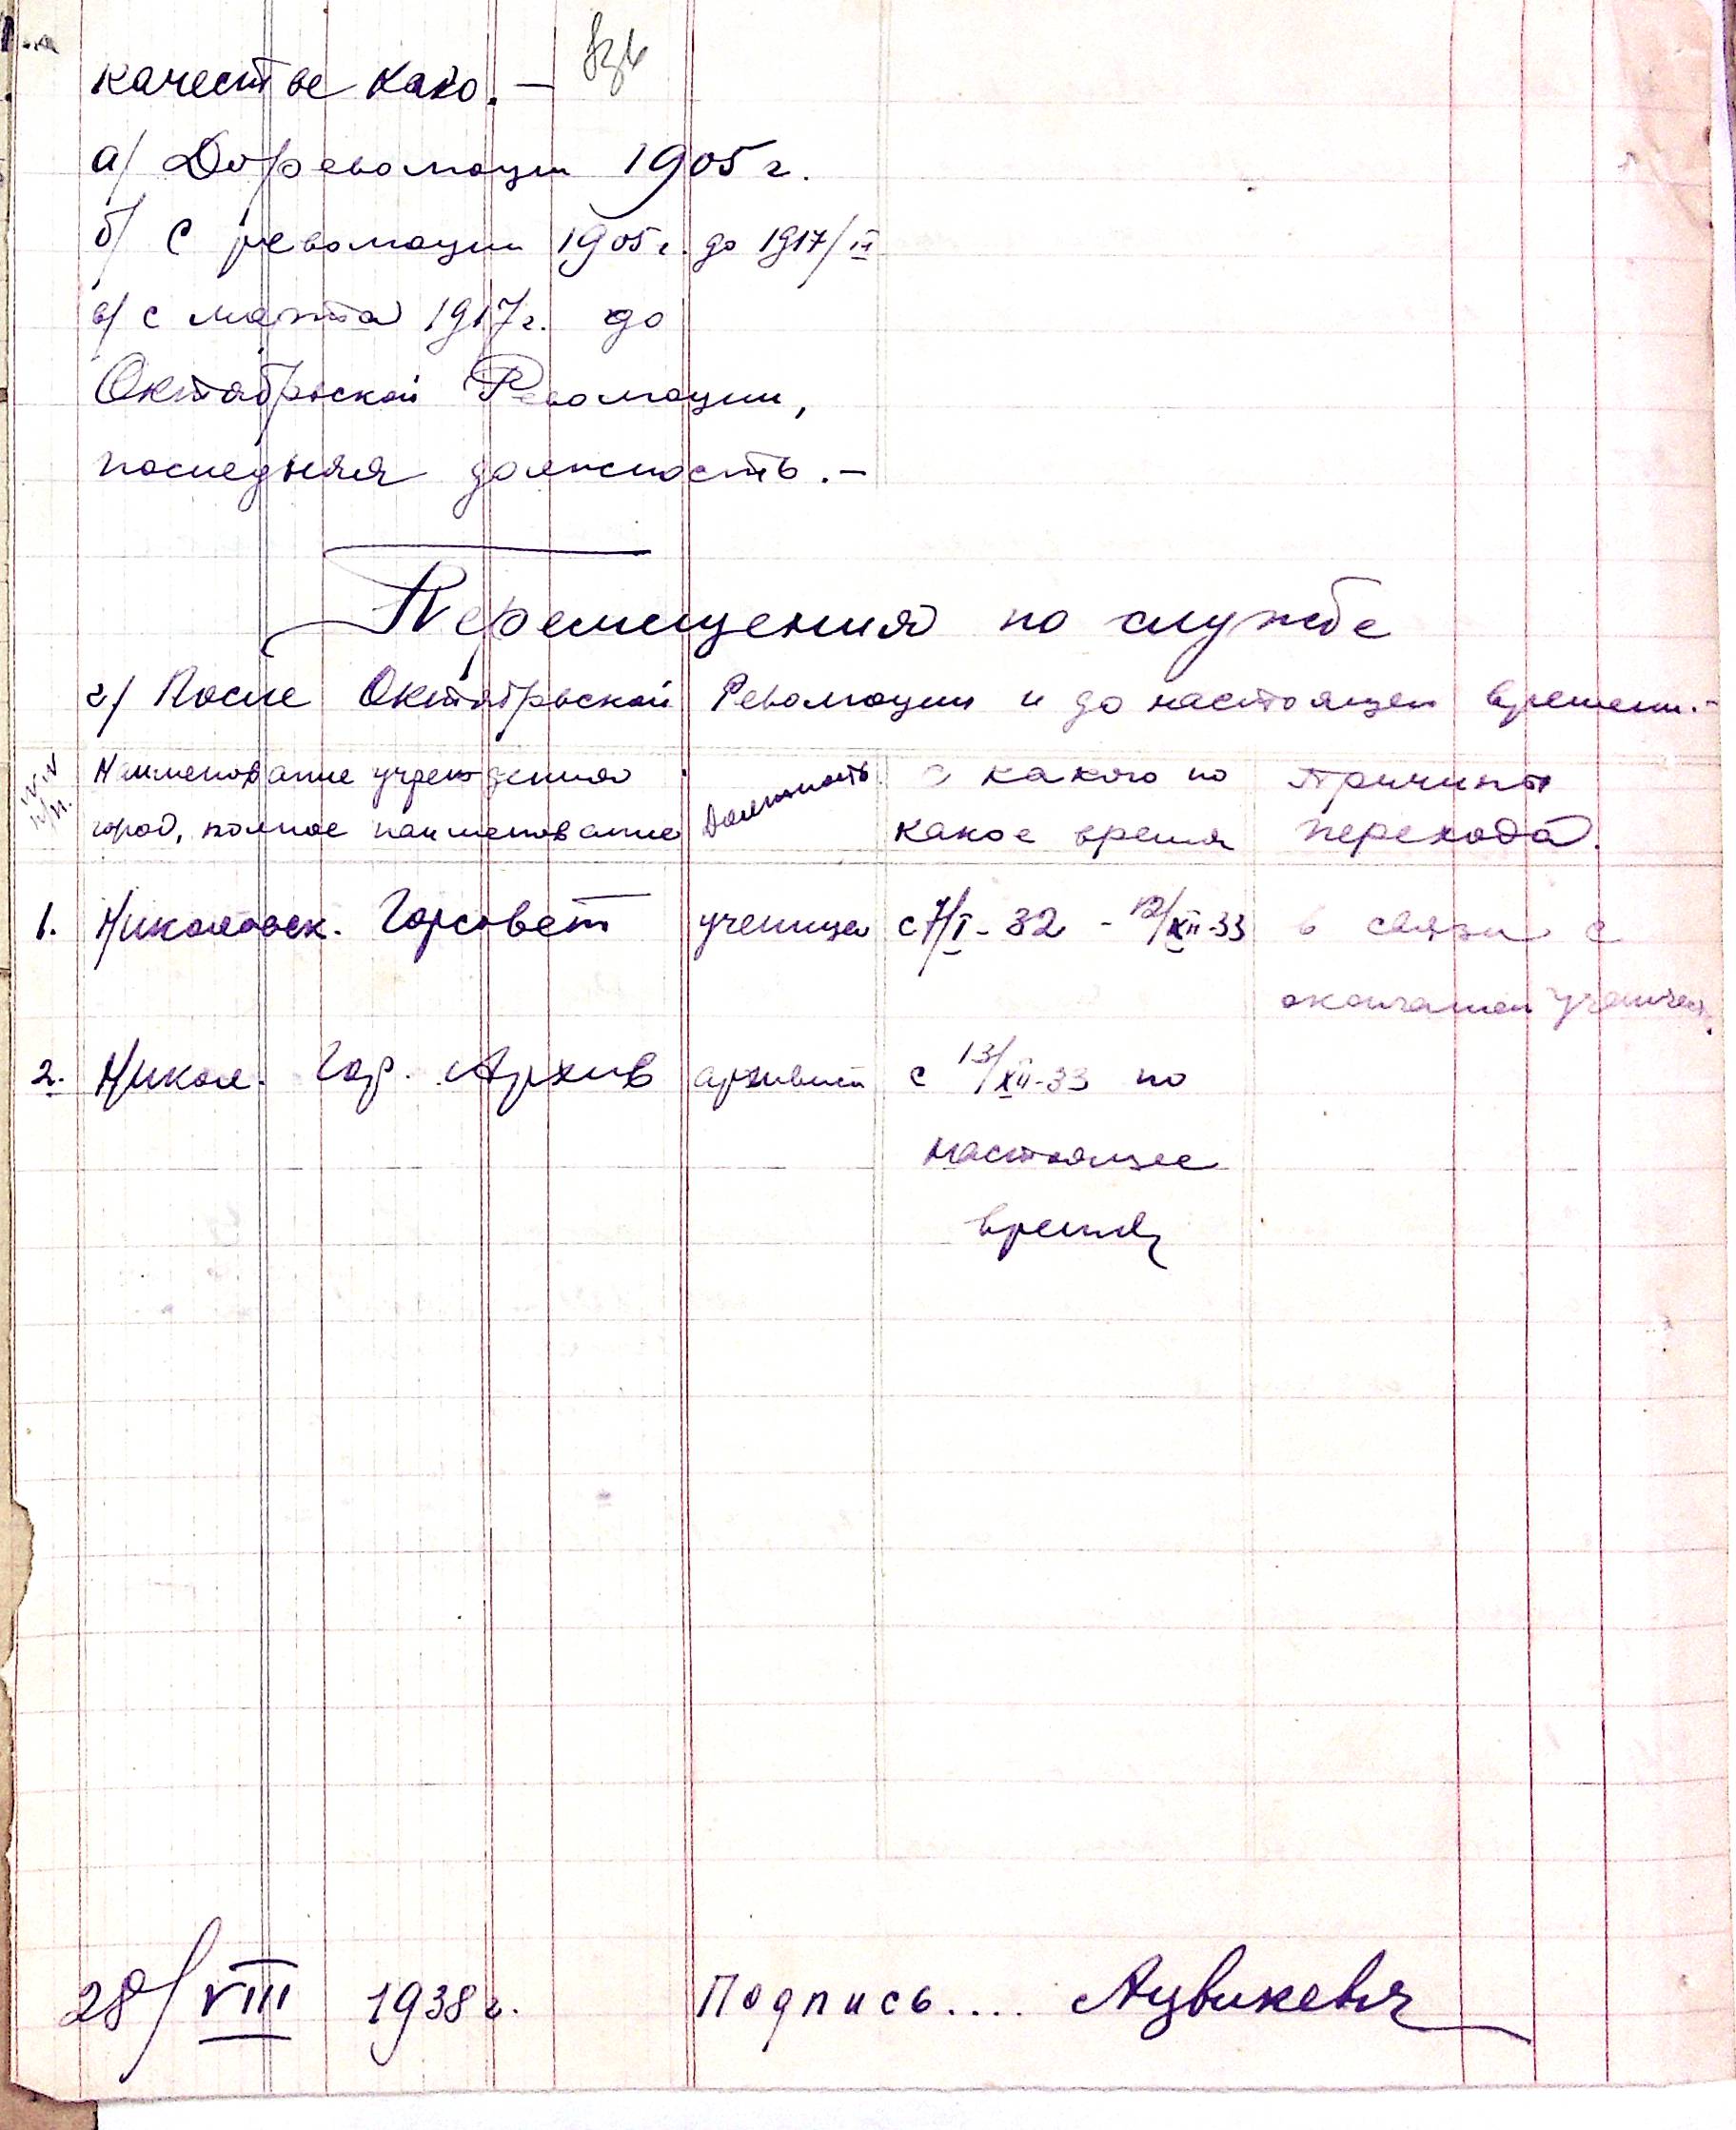 качестве кого. —
а/ До революции 1905 г.
б/ С революции 1905 г. до 1917/II
в/ с марта 1917 г. до
Октябрьской Революции,
последняя должность. —
Перемещения по службе
г/ После Октябрьской Революции и до настоящей времени. -
№№ п/п. Наименование учреждения город, полное наименование Должность С какого по какое время Причины перехода.
1. Николаевск. Горсовет ученица с 7/I - 32 - 12/XII-33 в связи с
окончанием ученичест.
2. Никол. Гор. Архив архивист с 13/XII-33 по
настоящее
время
28/VIII 1938 г. Подпись.... Ацвикевич